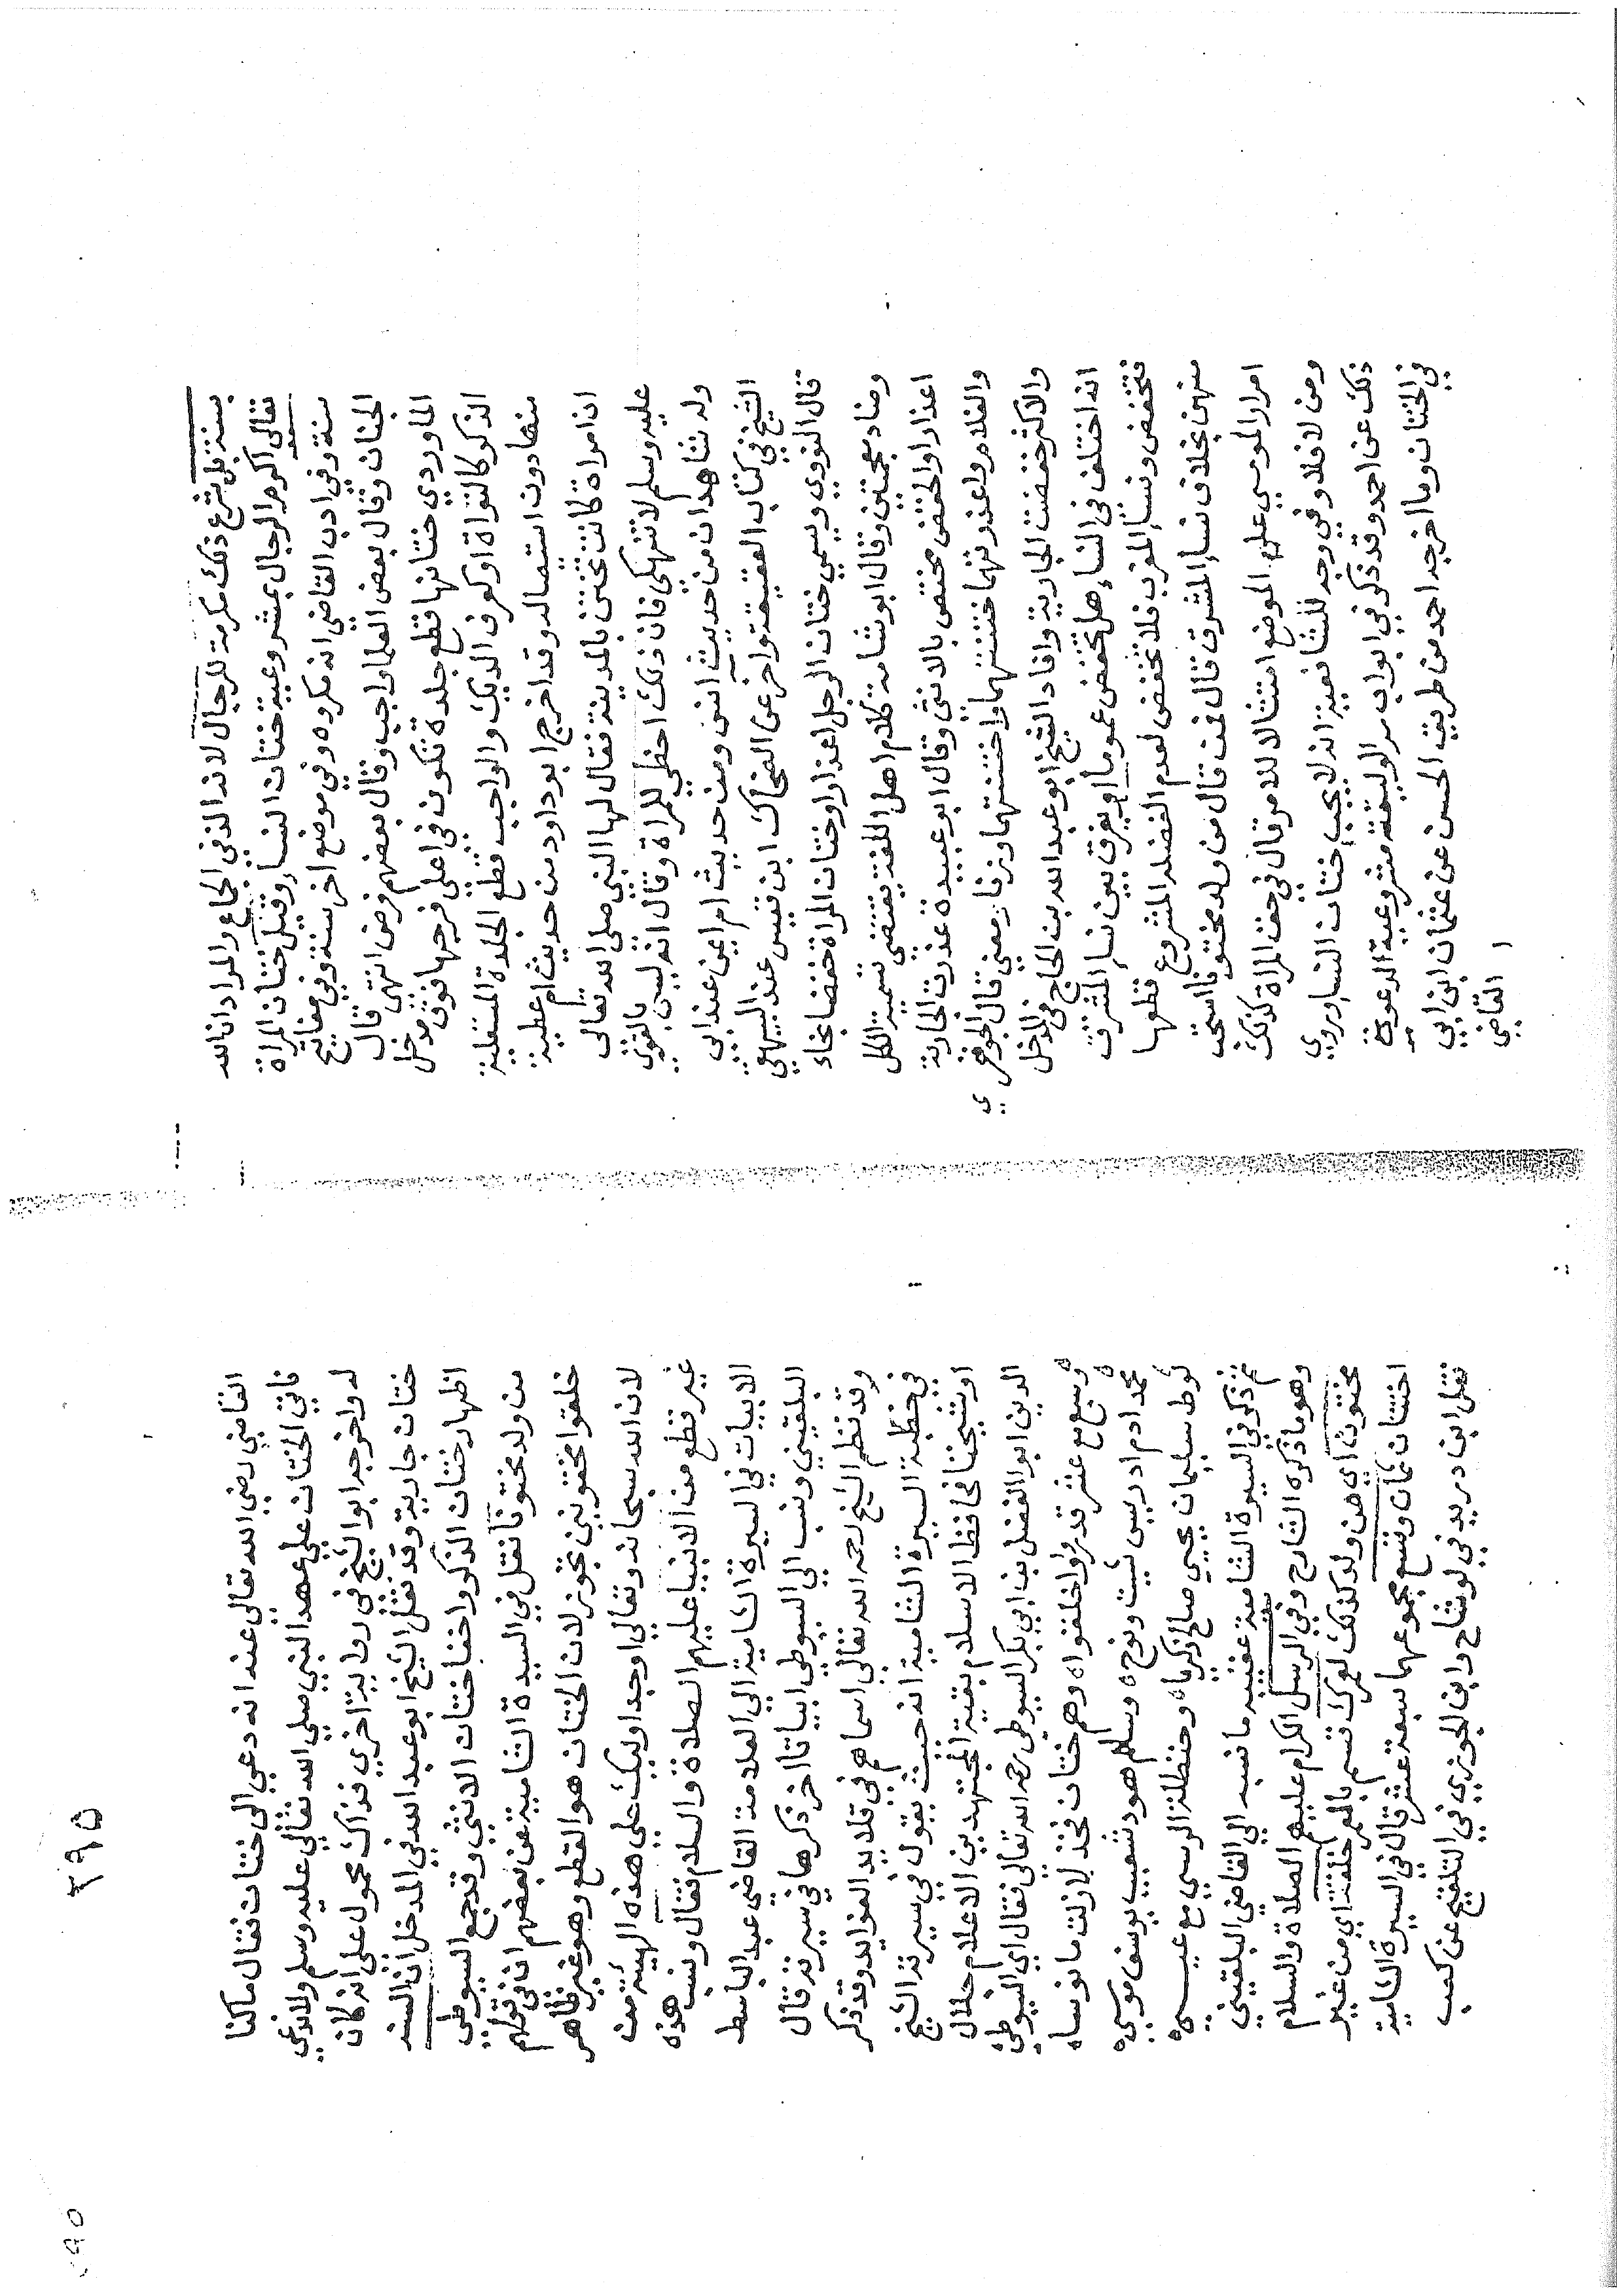 بسنة بل شرع ذلك مكرمة للرجال لانه الذ في الجماع والمراد ان الله
تعالى اكرم الرجال بمشروعية ختان النساء وقيل ختان المراة
سنة وفي ادب القاضي انه مكروه وفي موضع اخر سنة وفي مفاتيح
الجنان وقال بعض العلما واجب وقال بعضهم فرض انتهى قال
الماوردي ختانها قطع جلدة تكون في اعلى فرجها فوق مدخل
الذكر كالنواة او كعرف الديك والواجب قطع الجلدة المستعلية
منها دون استيصاله وقد اخرج ابو داود من حديث ام عطية
ان امراة كانت تختن بالمدينة فقال لها النبي صلى الله تعالى
عليه وسلم لا تنهكي فان ذلك احظى للمراة وقال انه ليس بالقوي
وله شاهدان من حديث انس ومن حديث ام ايمن عند ابي
الشيخ في كتاب العقيقة واخر عن الضحاك ابن قيس عند البيهقي
قال النووي ويسمى ختان الرجل اعذارا وختان المراة خفضا بخاء
وضاد معجمتين وقال ابو شامة كلام اهل اللغة يقتضي تسمية الكل
اعذارا والخفض مختص بالانثى وقال ابو عبيدة عذرت الجارية
والغلام واعذرتهما ختنتهما واختنتهما وزنا ومعنى قال الجوهري
والاكثر خفضت الجارية وافاد الشيخ ابو عبد الله بن الحاج في المدخل
انه اختلف في النساء هل تخفض عموما او يفرق بين نساء المشرق
فتخفض ونساء المغرب فلا تخفض لعدم الفضلة المشروع قطعها
منهن بخلاف نساء المشرق قال فمن قال من ولد مختونا استحب
امرار الموسي على الموضع امتثالا للامر قال في حق المراة كذلك
ومن لا فلا وفي وجه للشافعية انه لا يجب ختان النساء وروي
ذلك عن احمد وقد ذكر في ابواب الوليمة مشروعية الدعوة
في الختان وما اخرجه احمد من طريق الحسن عن عثمان ابن ابي
القاضي
٣٩٥
القاضي رضي الله تعالى عنه انه دعي الى ختان فقال ما كنا
ناتي الختان على عهد النبي صلى الله تعالى عليه وسلم ولا ندعى
له واخرجه ابو الشيخ في رواية اخرى فذاك محمول على انه كان
ختان جارية وقد نقل الشيخ ابو عبد الله في المدخل ان السنة
اظهار ختان الذكر واخفا ختان الانثى وقد جمع السيوطي
من ولد مختونا نقل في السيرة الشامية عن بعضهم انه في قولهم
خلقوا مختونين تجوز لان الختان هو القطع وهو غير ظاهر
لان الله سبحانه وتعالى اوجد اوليك على هذه الهيئة من
غير قطع من الانبياء عليهم الصلاة والسلام فقال ونسب هذه
الابيات في السيرة الشامية الى العلامة القاضي عبد الباسط
البلقيني ونسب الى السيوطي ابياتا اخر ذكرها في سيرته قال
وقد نظم الشيخ رحمه الله تعالى اسماهم في قلايد الفوايد وقد ذكر
في خطبة السيرة الشامية انه حيث يقول في سيرته الشيخ
او شيخنا فحافظ الاسلام بقية المجتهدين الاعلام جلال
الدين ابو الفضل بن ابي بكر السيوطي رحمه الله تعالى فقال اي السيوطي
وسبع مع عشر قد روا خلقواه وهم ختان فخذ لا زلت مانوساه
محمد ادم ادريس شيث ونوح وسام هود شعيب يوسف موسى
لوط سليمان يحيى صالح زكرياه وحنظلة الرسي مع عيسى
ثم ذكر في السيرة الشامية عقبيه ما نسبه الى القاضي البلقيني
وهو ما ذكره الشارح وفي الرسل الكرام عليهم الصلاة والسلام
مختون اي من ولد كذلك لعمرك قسم بالعمر خلقة اي من غير
اختتان ثمان وتسع مجموعهما سبعة عشر قال في السيرة الشامية
نقل ابن دريد في الوشاح وابن الجوزي في التلقيح عن كعب